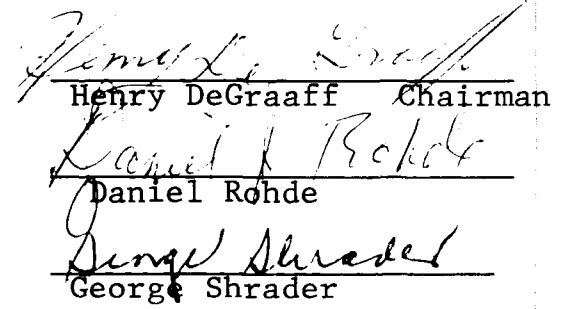 Henry De Graaff
Henry DeGraaff Chairman
Daniel J Rohde
Daniel Rohde
George Shrader
George Shrader